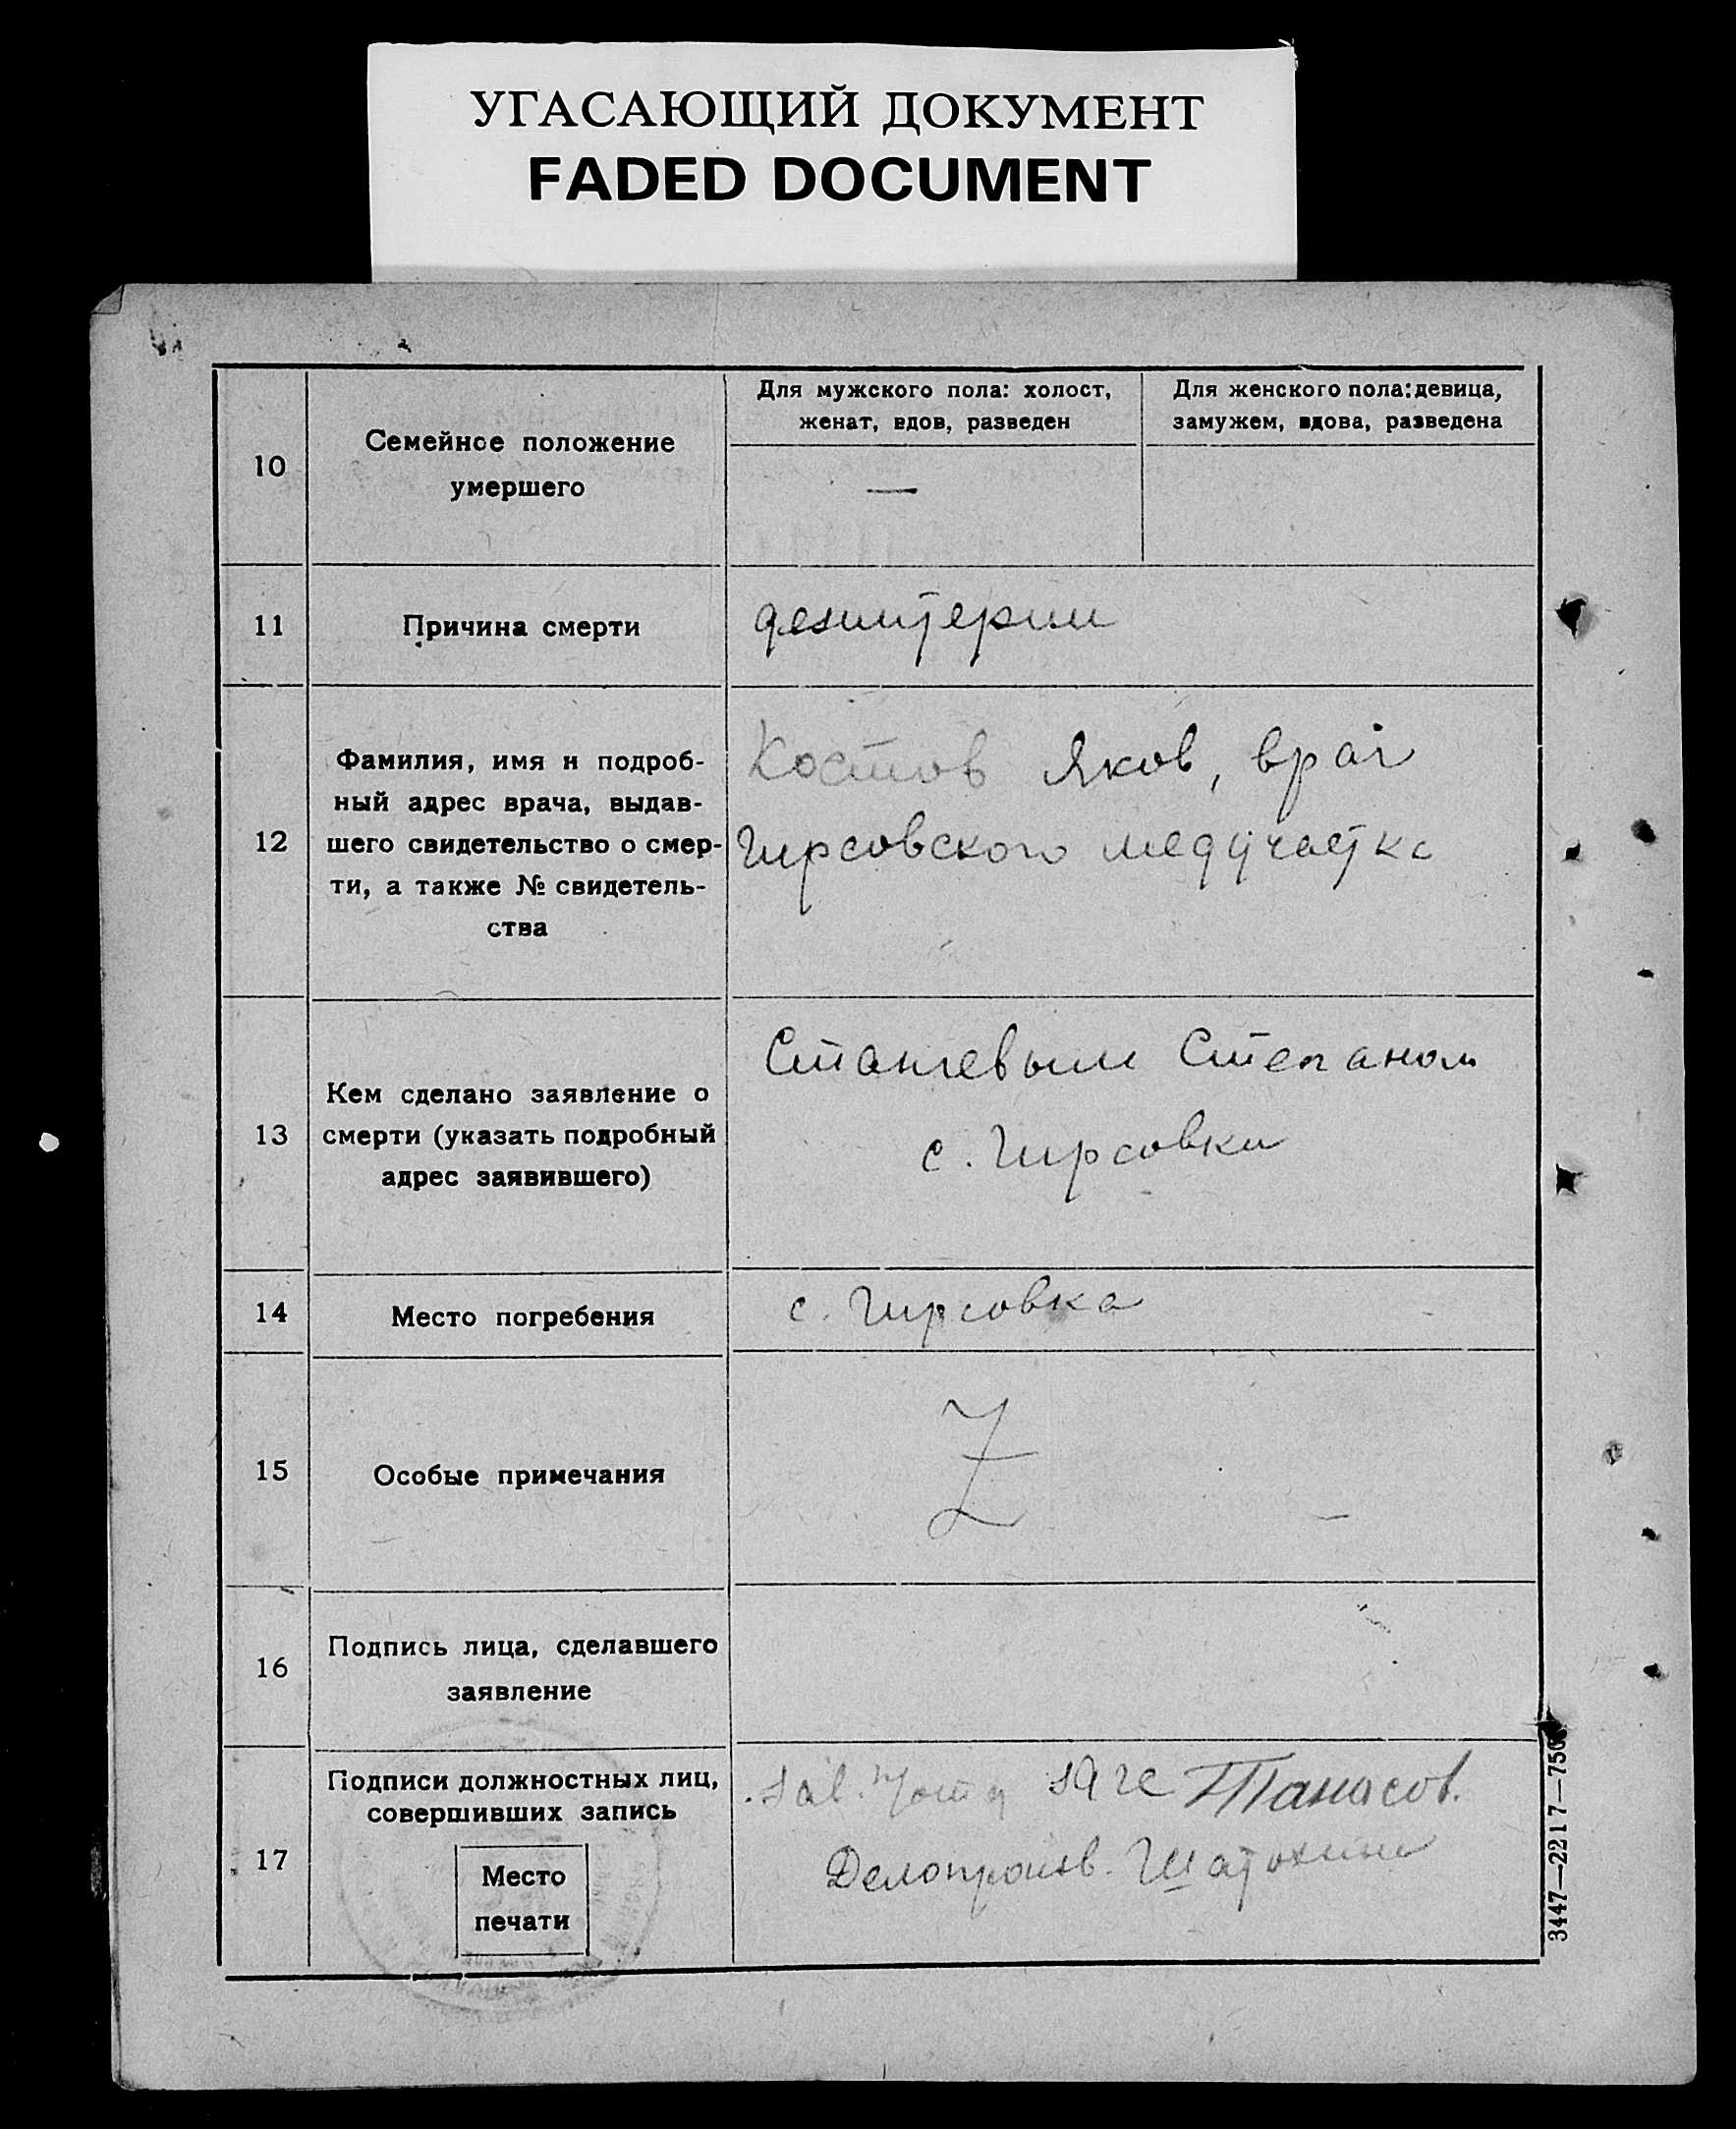 УГАСАЮЩИЙ ДОКУМЕНТ
FADED DOCUMENT
10
Семейное положение
умершего
Для мужского пола: холост,
женат, вдов, разведен
Для женского пола: девица,
замужем, вдова, разведена
—
11
Причина смерти
дезинтерии
12
Фамилия, имя и подроб-
ный адрес врача, выдав-
шего свидетельство о смер-
ти, а также № свидетель-
ства
Костов Яков, врач
Гирсовского медучастка
13
Кем сделано заявление о
смерти (указать подробный
адрес заявившего)
Станчевым Степаном
с. Гирсовки
14
Место погребения
с. Гирсовка
15
Особые примечания
Z
16
Подпись лица, сделавшего
заявление
17
Подписи должностных лиц,
совершивших запись
Место
печати
Зав. Танасов.
Делопроизв. Шатохин
3447—2217—750